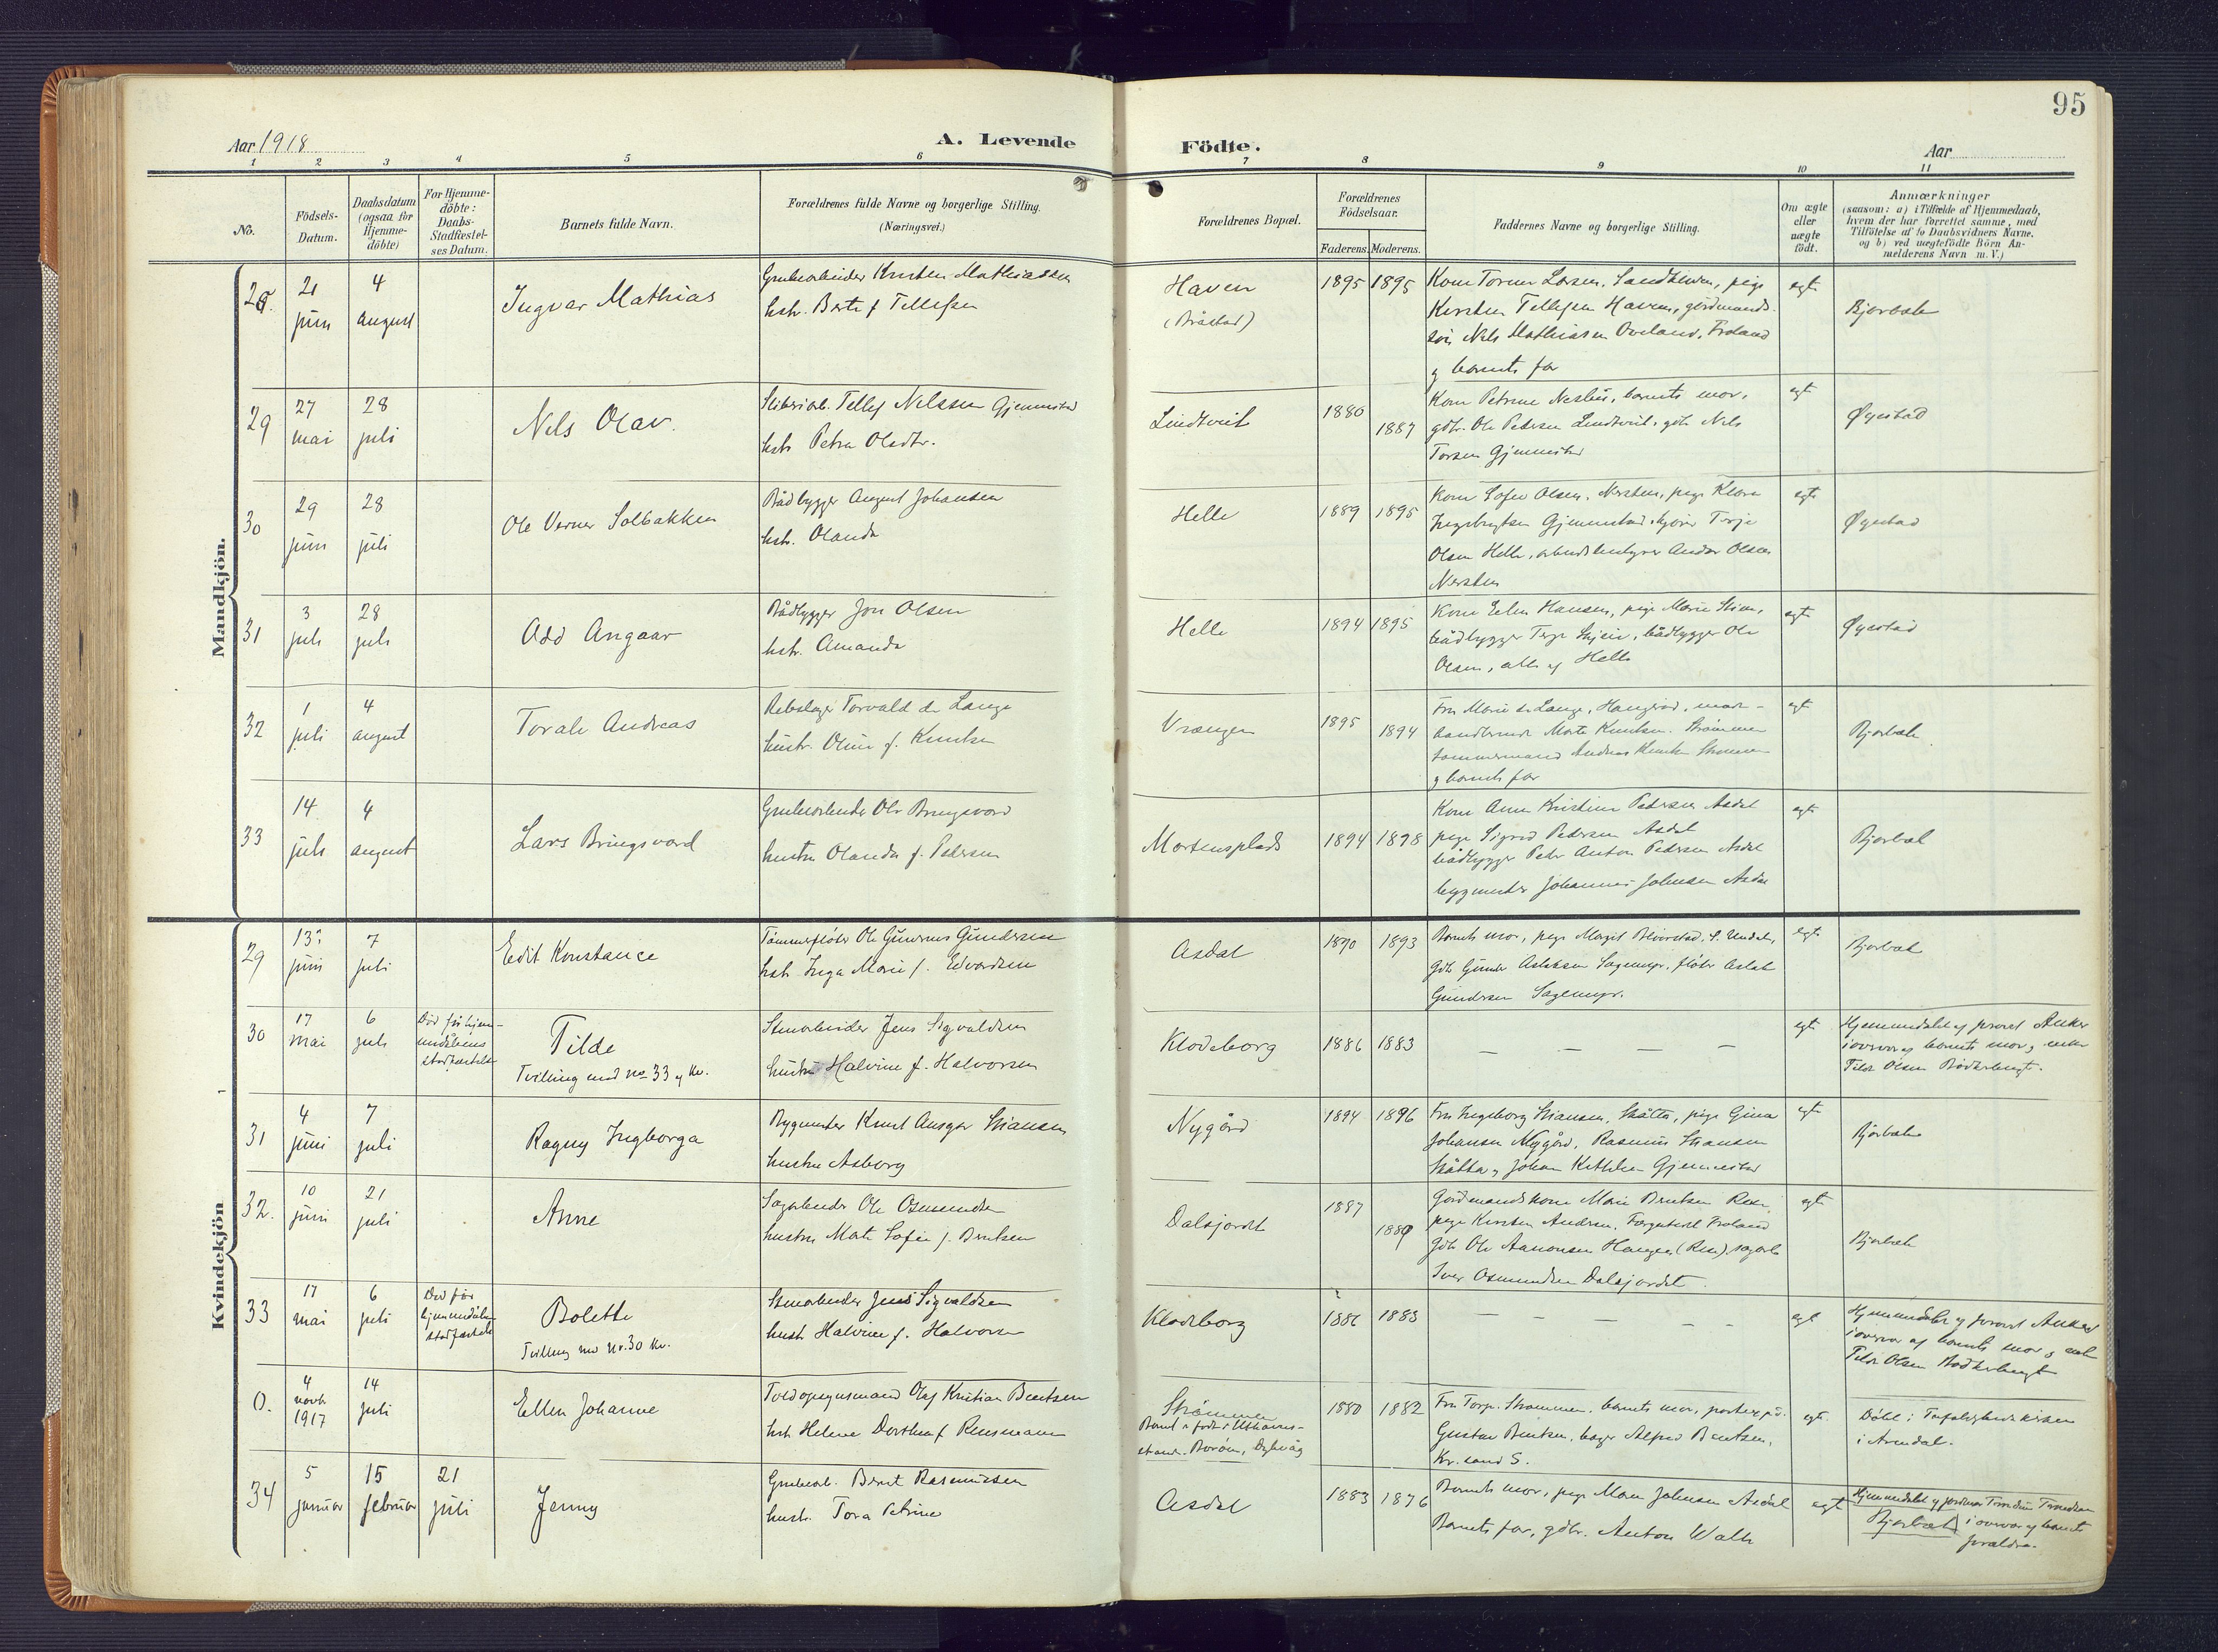 95
Aar 1918
A. Levende
Födte.
Aar
1 2 3 4 5 6 7 8 9 10 11
No.
Födsels-
Datum.
Daabsdatum
(ogsaa for
Hjemme-
döbte)
For Hjemme-
döbte:
Daabs-
Stadfæstel-
ses Datum.
Barnets fulde Navn.
Forældrenes fulde Navne og borgerlige Stilling.
(Næringsvei.)
Forældrenes Bopæl.
Forældrenes
Födselsaar.
Faderens. Moderens.
Faddernes Navne og borgerlige Stilling.
Om ægte
eller
uægte
födt.
Anmærkninger
(saasom: a) i Tilfælde af Hjemmedaab,
hvem der har forrettet samme, med
Tilföielse af to Daabsvidners Navne,
og b) ved uægtefödte Börn An-
melderens Navn m. V.)
Mandkjön.
21
juni
4
august
Ingvar Mathias
Grubearbeider Kristen Mathiassen
hstr. Berte f. Tellefsen
Haven
(Bråstad)
1895 1895
Kone Torine Larsen,
Kirsten Tellefsen Haven, gårdmands-
søn Nils Mathiassen Oveland, Froland
og barnets far
egt
Bjorbæk
29
27
mai
28
juli
Nils Olav.
Sliberiarb. Tellef Nilssen Gjennestad
hstr. Petra Olsdtr.
Lindtveit
1880
1887
Kone Petrine Nesbu, barnets mor,
gdbr. Ole Pedersen Lindtveit, gdb. Nils
Torsen Gjennestad
egt
Øyestad
30
29
juni
28
juli
Ole Verner Solbakken
Bådbygger August Johansen
hstr. Olanda
Helle
1889 1895
Kone Sofie Olsen, Nersten, pige Klara
Ingebretsen Gjennestad, Terje
Olsen Helle, Olsen
Nersten
egt
Øyestad
31
3
juli
28
juli
Odd Angaar
Bådbygger Jon Olsen
hstr. Amanda
Helle
1894 1895
Kone Elen Hansen, pige Marie
bådbygger Terje, bådbygger Ole
Olsen, alle af Helle
egt
Øyestad
32
1
juli
4
august
Torale Andreas
Rebslager Torvald de Lange
hustr. Oline f. Knutsen
Vrængen
1895
1894
Fru Marie de Lange,
Marte Knutsen. Strømmen
tømmermand Andreas Knutsen Strømmen
og barnets far
egt
Bjorbæk
33
14
juli
4
august
Lars Bringsvord
Grubearbeider Ole Bringsvord
hustru Olanda f. Pedersen
Mortensplads
1894 1898
Kone Anne Kristine Pedersen Asdal
pige Sigrid Pedersen Asdal
bådbygger Peder Anton Pedersen Asdal
bygmester Johannes Johnsen Asdal
egt
Bjorbæk
Kvindekjön
29
13
juni
7
juli
Edit Konstance
Tømmerfløter Ole Gunerius Gundersen
hstr. Inga Marie f. Edvardsen
Asdal
1890 1893
Barnets mor, pige Margit
Gdb. Gunder Aslaksen Sagemyr, fløter Aslak
Gundersen Sagemyr.
egt
Bjorbæk
30
17
mai
6
juli
Død før hjem-
medåbens
stadfæstelse
Tilde
Tvilling med No 33 af Kv.
Stenarbeider Jens Sigvaldsen
hustru Halvine f. Halvorsen
Klodeborg
1886 1883
— — — —
egt
Hjemmedøbt af provst Anker
i overvær af barnets mor og enke
Tilda Olsen Bødkerhagt.
31
4
juni
7
juli
Ragny Ingborga
Bygmester Knut Ansgar Stiansen
hustru Asborg
Nygård
1894 1896
Fru Ingeborg Stiansen, Skåtta, pige Gina
Johansen Nygård, Rasmus Stiansen
Skåtta og Johan Kittelsen Gjennestad
egt
Bjorbæk
32.
10
juni
21
juli
Anne
Sagarbeider Ole Osmundsen
hustru Marte Sofie f. Berntsen
Dalsjordet
1887
1889
Gårdmandskone Marie Berntsen
pige Kirsten Andrea, Froland
Gdb. Ole Aanonsen Haugen
Iver Osmundsen Dalsjordet.
egt
Bjorbæk
33
17
mai
6
juli
Død før
hjemmedåbens
stadfæstelse
Bolette
Tvilling med Nr. 30 Kv.
Stenarbeider Jens Sigvaldsen
hustr. Halvine f. Halvorsen
Klodeborg
1886 1883
— — — — —
egt
Hjemmedøbt af provst Anker
i overvær af barnets mor og enke
Tilda Olsen Bødkerhagt
0.
4
novbr
1917
14
juli
Ellen Johanne
Toldopsynsmand Olaf Kristian Bentsen
hstr. Helene Dorthea f. Rensmann
Strømmen
Barnet er født i
Borøen, Dybvåg
1880 1882
Fru Strømmen, barnets mor,
Gustav Bentsen, bager Alfred Bentsen,
Kr.sand S.
egt.
Døbt i Trefoldighedskirken
i Arendal.
34
5
januar
15
februar
21
juli
Jenny
Grubearb. Bernt Rasmussen
hustr. Tora Petrine
Asdal
1883 1876
Barnets mor, pige Johnsen Asdal
Barnets far, gdbr. Anton Walle
egt
Hjemmedøbt af jordmor
Bjorbæk i overvær af barnets
forældre.